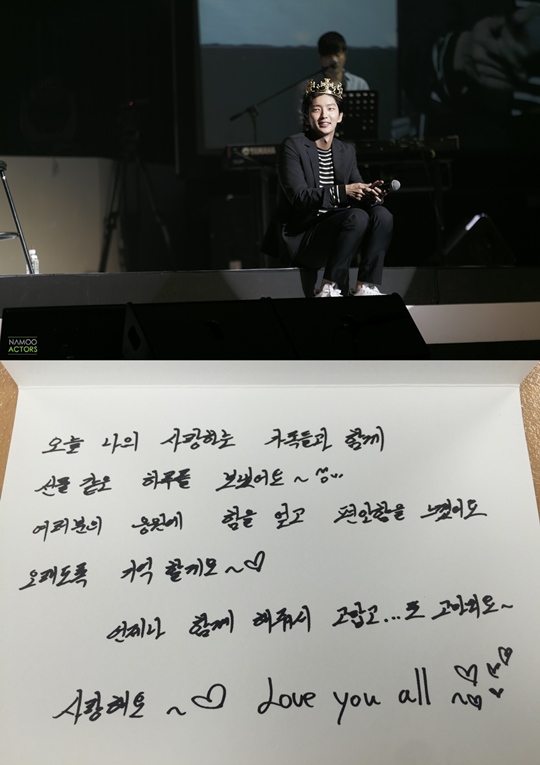 YAMAHA
NAMOO
ACTORS
오늘 나의 사랑하는 가족들과 함께
선물 같은 하루를 보냈어요~
여러분의 응원에 힘을 얻고 편안함을 느꼈어요
오래도록 기억 할게요~♡
언제나 함께 해줘서 고맙고...또 고마워요~
사랑해요~♡ Love you all ~♡♡♡♡